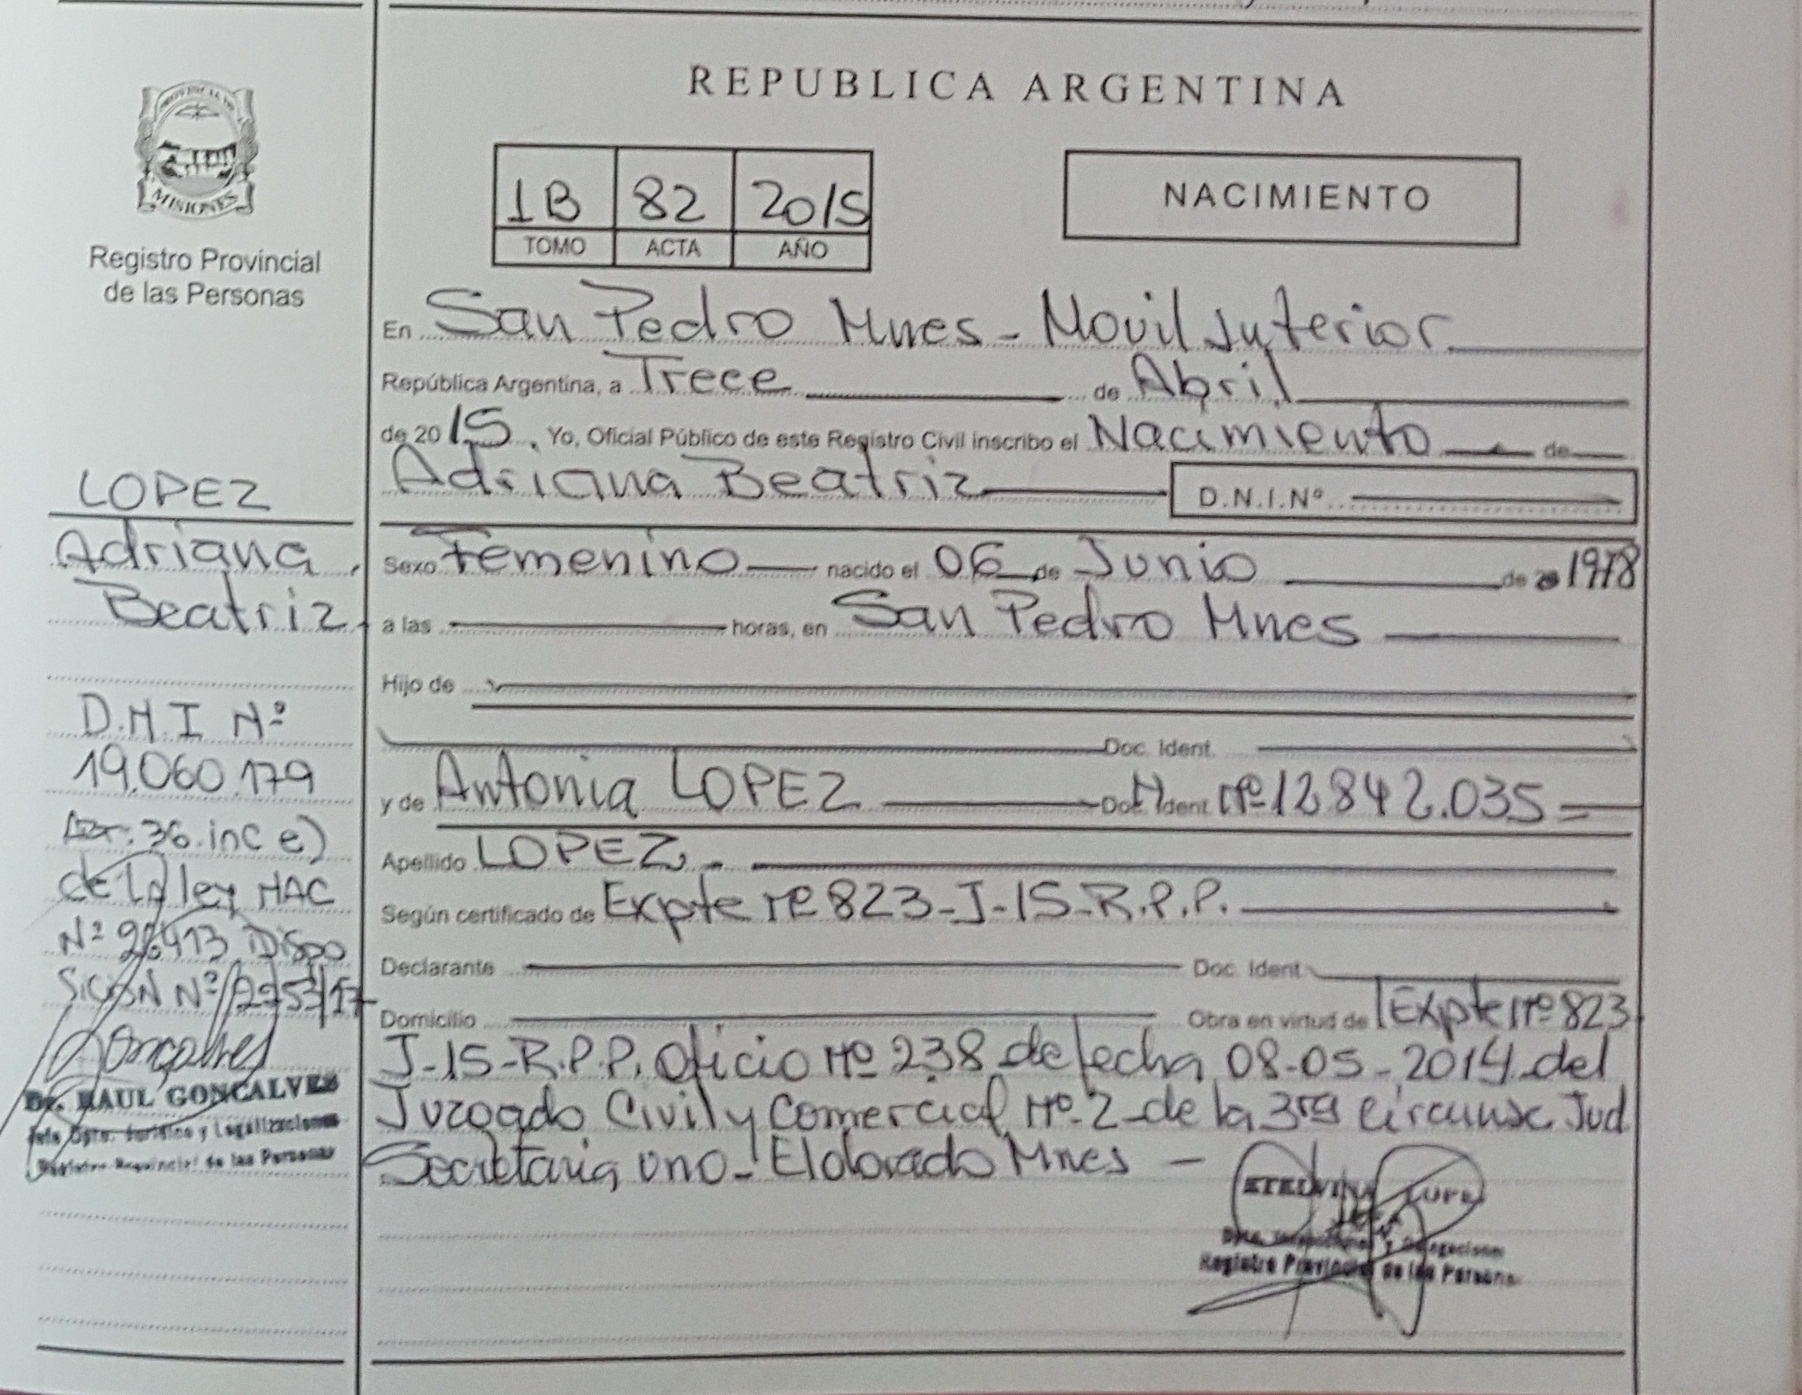 REPUBLICA ARGENTINA
PROVINCIA DE
MISIONES
Registro Provincial
de las Personas
1B 82 2015
TOMO ACTA AÑO
NACIMIENTO
En San Pedro Mnes - Movil Interior
República Argentina, a Trece de Abril
de 2015. Yo, Oficial Público de este Registro Civil inscribo el Nacimiento de
Adriana Beatriz D.N.I.Nº
Sexo Femenino nacido el 06 de Junio de 20 1978
a las horas, en San Pedro Mnes
Hijo de
Doc. Ident.
y de Antonia LOPEZ Doc. Ident. Nº 12842.035 =
Apellido LOPEZ. -
Según certificado de Expte Nº 823-J-15-R.P.P.
Declarante Doc. Ident.
Domicilio Obra en virtud de Expte Nº 823
J-15-R.P.P. Oficio Nº 238 de fecha 08-05-2014 del
Juzgado Civil y Comercial Nº 2 de la 3ra Circunsc Jud
Secretaria uno - Eldorado Mnes -
LOPEZ
Adriana
Beatriz
D.N.I Nº
19.060.179
36 inc e)
de la ley NAC
Nº 26413 Dispo
sición Nº
Goncalves
Dr. RAUL GONCALVES
Jefe Dpto. Jurídico y Legalizaciones
Registro Provincial de las Personas
Registro Provincial de las Personas